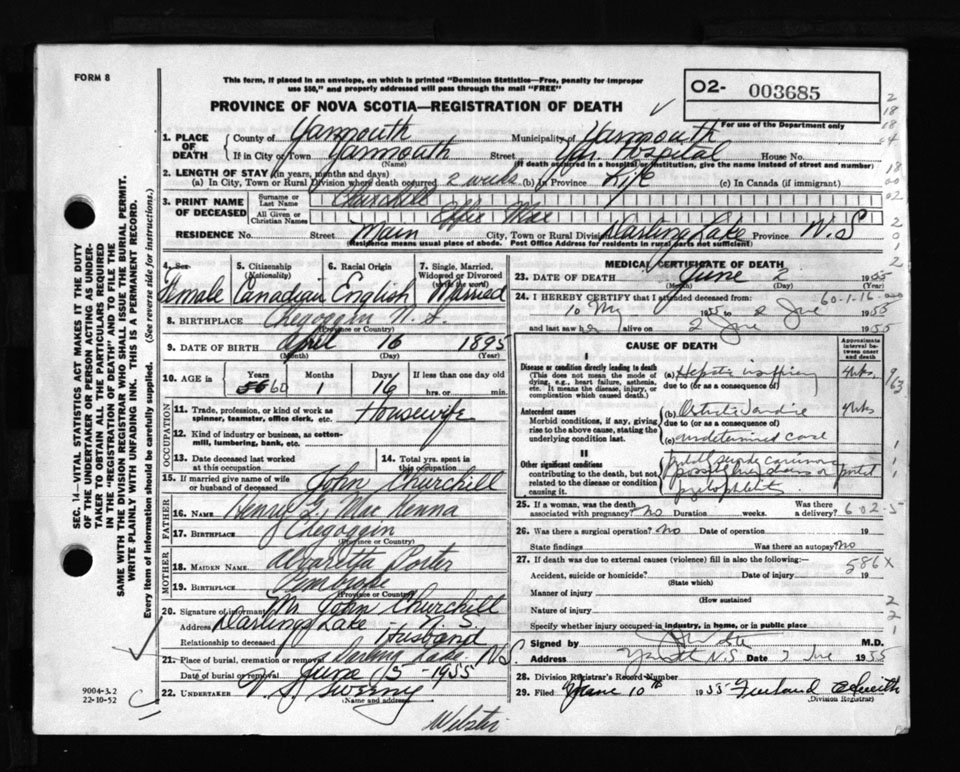 FORM 8
This form, if placed in an envelope, on which is printed "Dominion Statistics—Free, penalty for improper
use $50," and properly addressed will pass through the mail "FREE"
PROVINCE OF NOVA SCOTIA—REGISTRATION OF DEATH
O2- 003685
For use of the Department only
1. PLACE OF DEATH
County of Yarmouth Municipality of Yarmouth
If in City or Town Yarmouth Street Yar. Hospital House No.
(Name) (If death occurred in a hospital or institution, give the name instead of street and number)
2. LENGTH OF STAY (in years, months and days)
(a) In City, Town or Rural Division where death occurred 2 weeks (b) in Province Life (c) In Canada (if immigrant)
3. PRINT NAME OF DECEASED
Surname or Last Name Churchill
All Given or Christian Names Effie Mae
RESIDENCE No. Street Main City, Town or Rural Division Darling Lake Province N.S
(Residence means usual place of abode. Post Office Address for residents in rural parts not sufficient)
4. Sex
Female
5. Citizenship (Nationality)
Canadian
6. Racial Origin
English
7. Single, Married, Widowed or Divorced (write the word)
Married
8. BIRTHPLACE Chegoggin N.S.
(Province or Country)
9. DATE OF BIRTH April 16 1895
(Month) (Day) (Year)
10. AGE in Years Months Days If less than one day old
60 1 16 hrs. or min.
OCCUPATION
11. Trade, profession, or kind of work as spinner, teamster, office clerk, etc. Housewife
12. Kind of industry or business, as cotton-mill, lumbering, bank, etc.
13. Date deceased last worked at this occupation
14. Total yrs. spent in this occupation
15. If married give name of wife or husband of deceased John Churchill
FATHER
16. Name Henry L. MacKenna
17. BIRTHPLACE Chegoggin
(Province or Country)
MOTHER
18. MAIDEN NAME Alvaretta Porter
19. BIRTHPLACE Pembroke
(Province or Country)
20. Signature of informant Mr. John Churchill
Address Darlings Lake N.S.
Relationship to deceased Husband
21. Place of burial, cremation or removal Darling Lake N.S.
Date of burial or removal June 5 - 1955
22. UNDERTAKER V.S. Sweeny
(Name and address)
9004-3.2
22-10-52
Webster
MEDICAL CERTIFICATE OF DEATH
23. DATE OF DEATH June 2 1955
(Month) (Day)
24. I HEREBY CERTIFY that I attended deceased from:
60-1-16
1955 to 2 June 1955
and last saw her alive on 2 June 1955
CAUSE OF DEATH
Approximate interval between onset and death
I
Disease or condition directly leading to death
(This does not mean the mode of dying, e.g., heart failure, asthenia, etc. It means the disease, injury, or complication which caused death.)
(a) Hepatic
due to (or as a consequence of)
4 wks
Antecedent causes
Morbid conditions, if any, giving rise to the above cause, stating the underlying condition last.
(b)
due to (or as a consequence of)
4 wks
(c) undetermined
II
Other significant conditions
contributing to the death, but not related to the disease or condition causing it.
25. If a woman, was the death associated with pregnancy? No Duration weeks. Was there a delivery?
602-5
26. Was there a surgical operation? No Date of operation 19
State findings Was there an autopsy? No
27. If death was due to external causes (violence) fill in also the following:-
586X
Accident, suicide or homicide? Date of injury 19
(State which)
Manner of injury
(How sustained
Nature of injury
Specify whether injury occurred in industry, in home, or in public place
Signed by M.D.
Address N.S Date 3 June 1955
28. Division Registrar's Record Number
29. Filed June 10th 1955
(Division Registrar)
SEC. 14—VITAL STATISTICS ACT MAKES IT THE DUTY
OF THE UNDERTAKER OR PERSON ACTING AS UNDER-
TAKER TO OBTAIN ALL THE PARTICULARS REQUIRED
IN THE "REGISTRATION OF DEATH" AND TO FILE THE
SAME WITH THE DIVISION REGISTRAR WHO SHALL ISSUE THE BURIAL PERMIT.
WRITE PLAINLY WITH UNFADING INK. THIS IS A PERMANENT RECORD.
Every item of information should be carefully supplied. (See reverse side for instructions.)